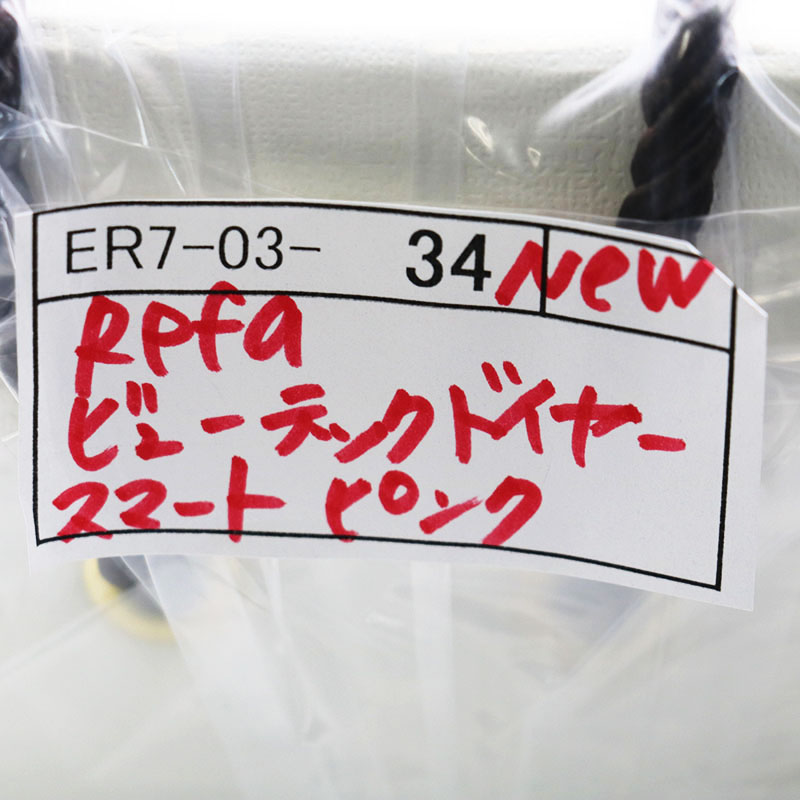 ER7-03- 34 New
Refa
ビューテックドイヤー
スマート ピンク